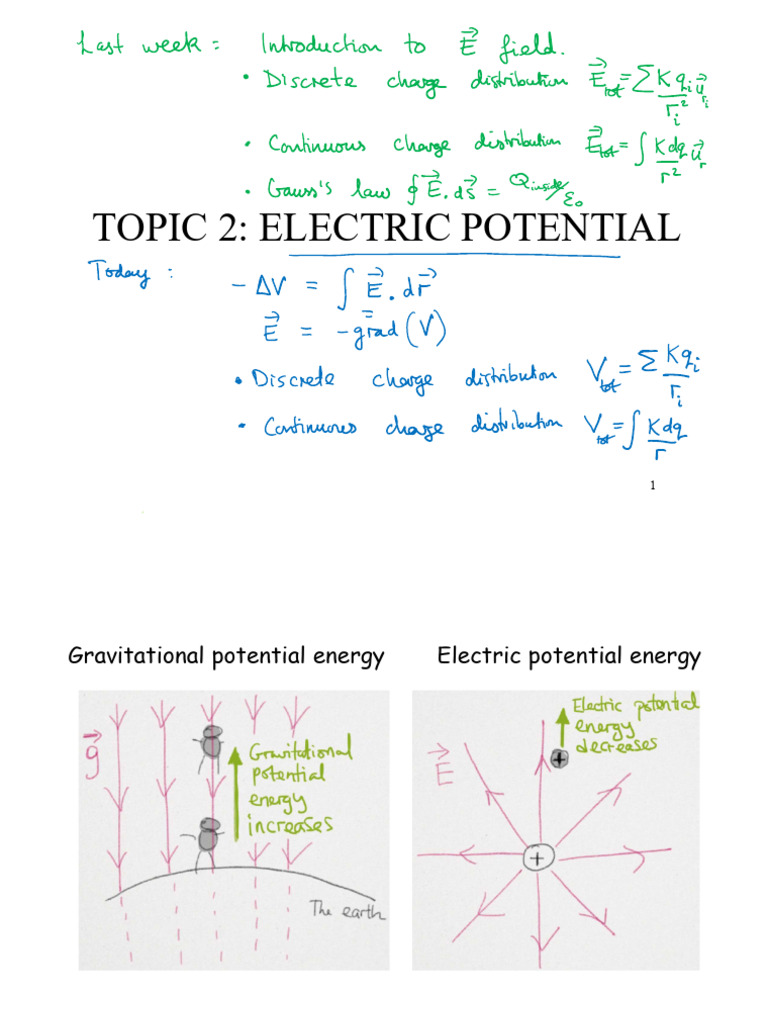 Last week : Introduction to E⃗ field.
• Discrete charge distribution E⃗tot = ∑ K qi/ri² u⃗ri
• Continuous charge distribution E⃗tot = ∫ K dq/r² u⃗r
• Gauss's law ∮ E⃗ . ds⃗ = Qinside/ε0
TOPIC 2: ELECTRIC POTENTIAL
Today :
- ΔV = ∫ E⃗ . dr⃗
E⃗ = - grad⃗ (V)
• Discrete charge distribution Vtot = ∑ K qi/ri
• Continuous charge distribution Vtot = ∫ K dq/r
1
Gravitational potential energy
g⃗
Gravitational
potential
energy
increases
The earth
Electric potential energy
Electric potential
energy
decreases
+
E⃗
+